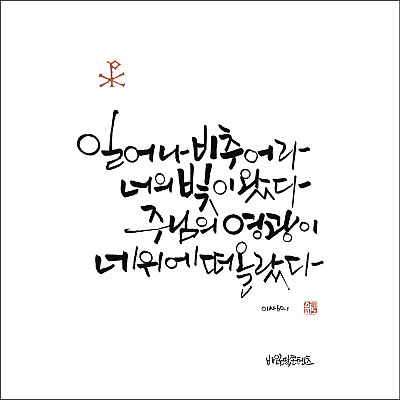 일어나 비추어라
너의 빛이 왔다
주님의 영광이
네 위에 떠올랐다
이사 60.1